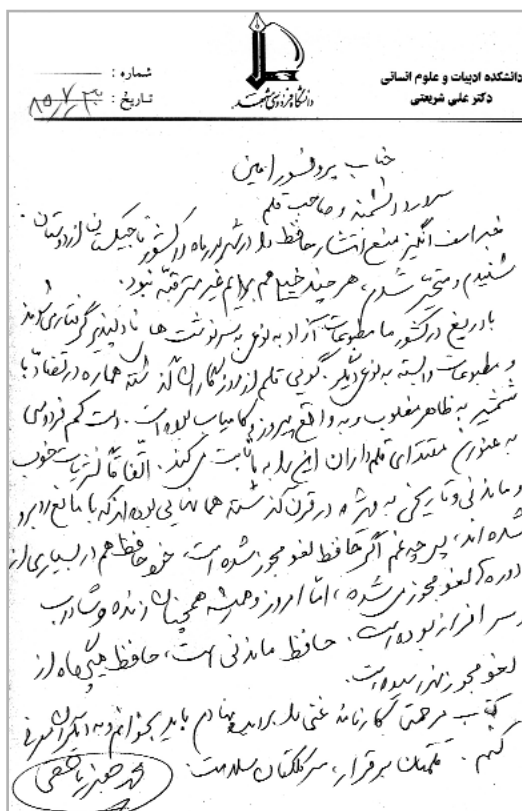 دانشکده ادبیات و علوم انسانی
دکتر علی شریعتی
دانشگاه فردوسی مشهد
شماره :
تاریخ : ۸۵/۷/۳۰
جناب پروفسور امین
سرور دانشمند و صاحب قلم
خبر اسف انگیز منع انتشار حافظ را در شهریورماه در کشور تاجیکستان از دوستان
شنیدم و متحیر شدم، هر چند خیلی هم برایم غیر مترقبه نبود.
با دریغ در کشور ما مطبوعات آزاد به نوعی به سرنوشت های نادلپذیر گرفتاری شدند
و مطبوعات وابسته به نوعی دیگر. گویی قلم از روزگاران گذشته همواره در تضاد با
شمشیر به ظاهر مغلوب و به واقع پیروز و کامیاب بوده است. دست کم فردوسی
به عنوان مقتدای قلمداران این را به ما ثابت می کند. اتفاقاً نشریات خوب
و ماندنی و تاریخی به ویژه در قرن گذشته همانهایی بوده اند که با مانع روبرو
شده اند، پس چه غم اگر حافظ لغو مجوز شده است، خود حافظ هم در بسیاری از
دوره ها لغو مجوز می شده، اما امروز و همیشه همچنان زنده و شاداب
و سرافراز بوده است. حافظ ماندنی است، حافظ هیچگاه از
لغو مجوز نهراسیده است.
کتاب مرحمتی کارنامه غنی را بر دیده نهادم باید بخوانم و به دیگران معرفی
کنم. قلمتان برقرار، سر کلکتان سلامت.
محمد جعفر یاحقی